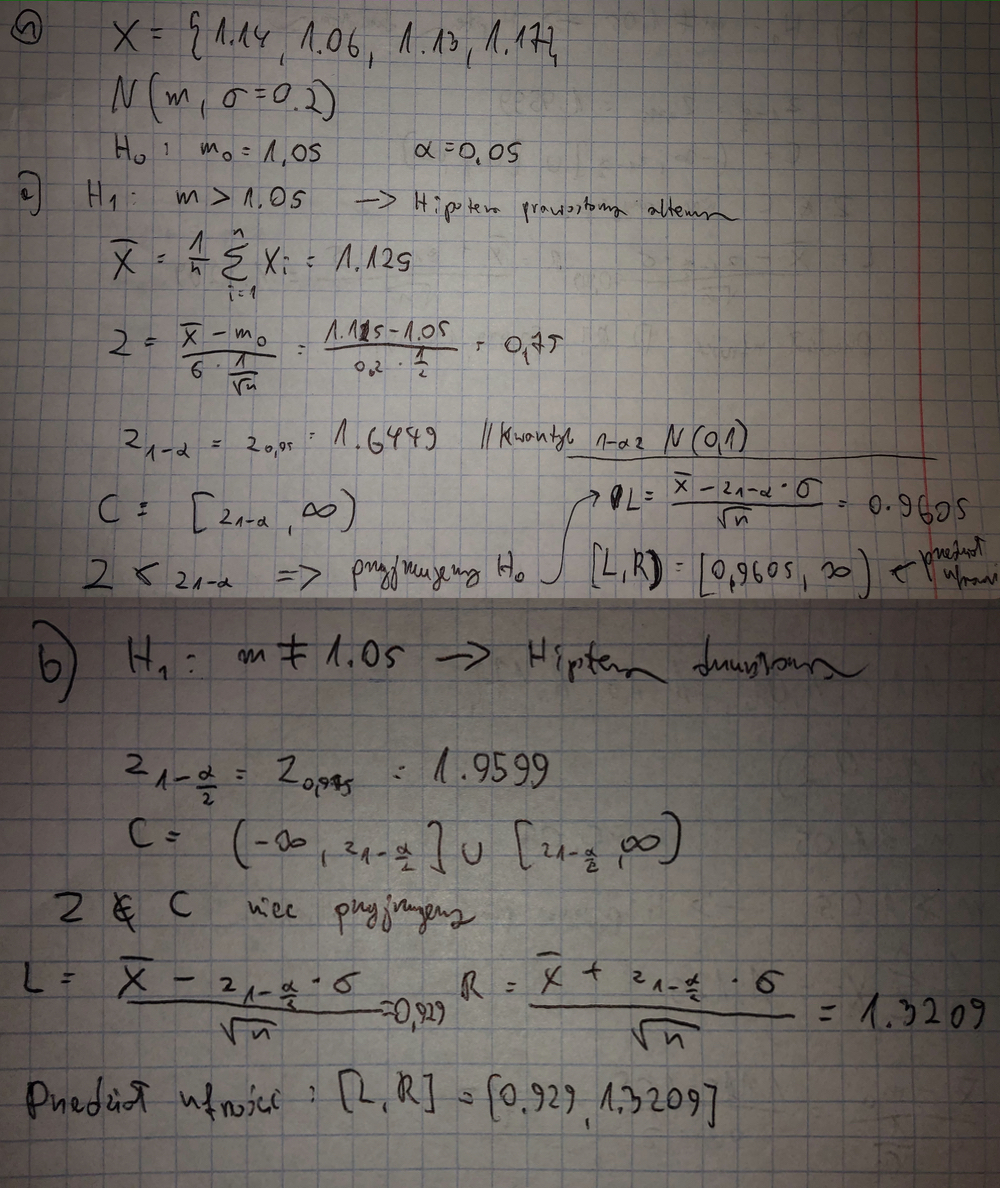 X = {1.14, 1.06, 1.13, 1.17}
N(m, σ=0.2)
H₀ : m₀ = 1,05 α=0,05
a) H₁: m > 1.05 → Hipoteza prawostronna
X̄ = 1/n ∑ᵢ₌₁ⁿ Xi = 1.125
Z = (X̄ - m₀)/(σ · 1/√n) = (1.125-1.05)/(0,2 · 1/2) = 0,75
z₁₋α = z₀,₉₅ = 1.6449 // Kwantyl 1-α z N(0,1)
C = [z₁₋α, ∞)
→ L = (X̄ - z₁₋α · σ)/√n = 0.9605
Z < z₁₋α ⇒ przyjmujemy H₀
[L, R) = [0,9605, ∞) ← przedział ufności
b) H₁: m ≠ 1.05 → Hipoteza dwustronna
z₁₋α/₂ = z₀,₉₇₅ = 1.9599
C = (-∞, z₁₋α/₂] ∪ [z₁₋α/₂, ∞)
Z ∉ C więc przyjmujemy
L = (X̄ - z₁₋α/₂ · σ)/√n = 0,929 R = (X̄ + z₁₋α/₂ · σ)/√n = 1.3209
Przedział ufności : [L, R] = [0.929, 1.3209]